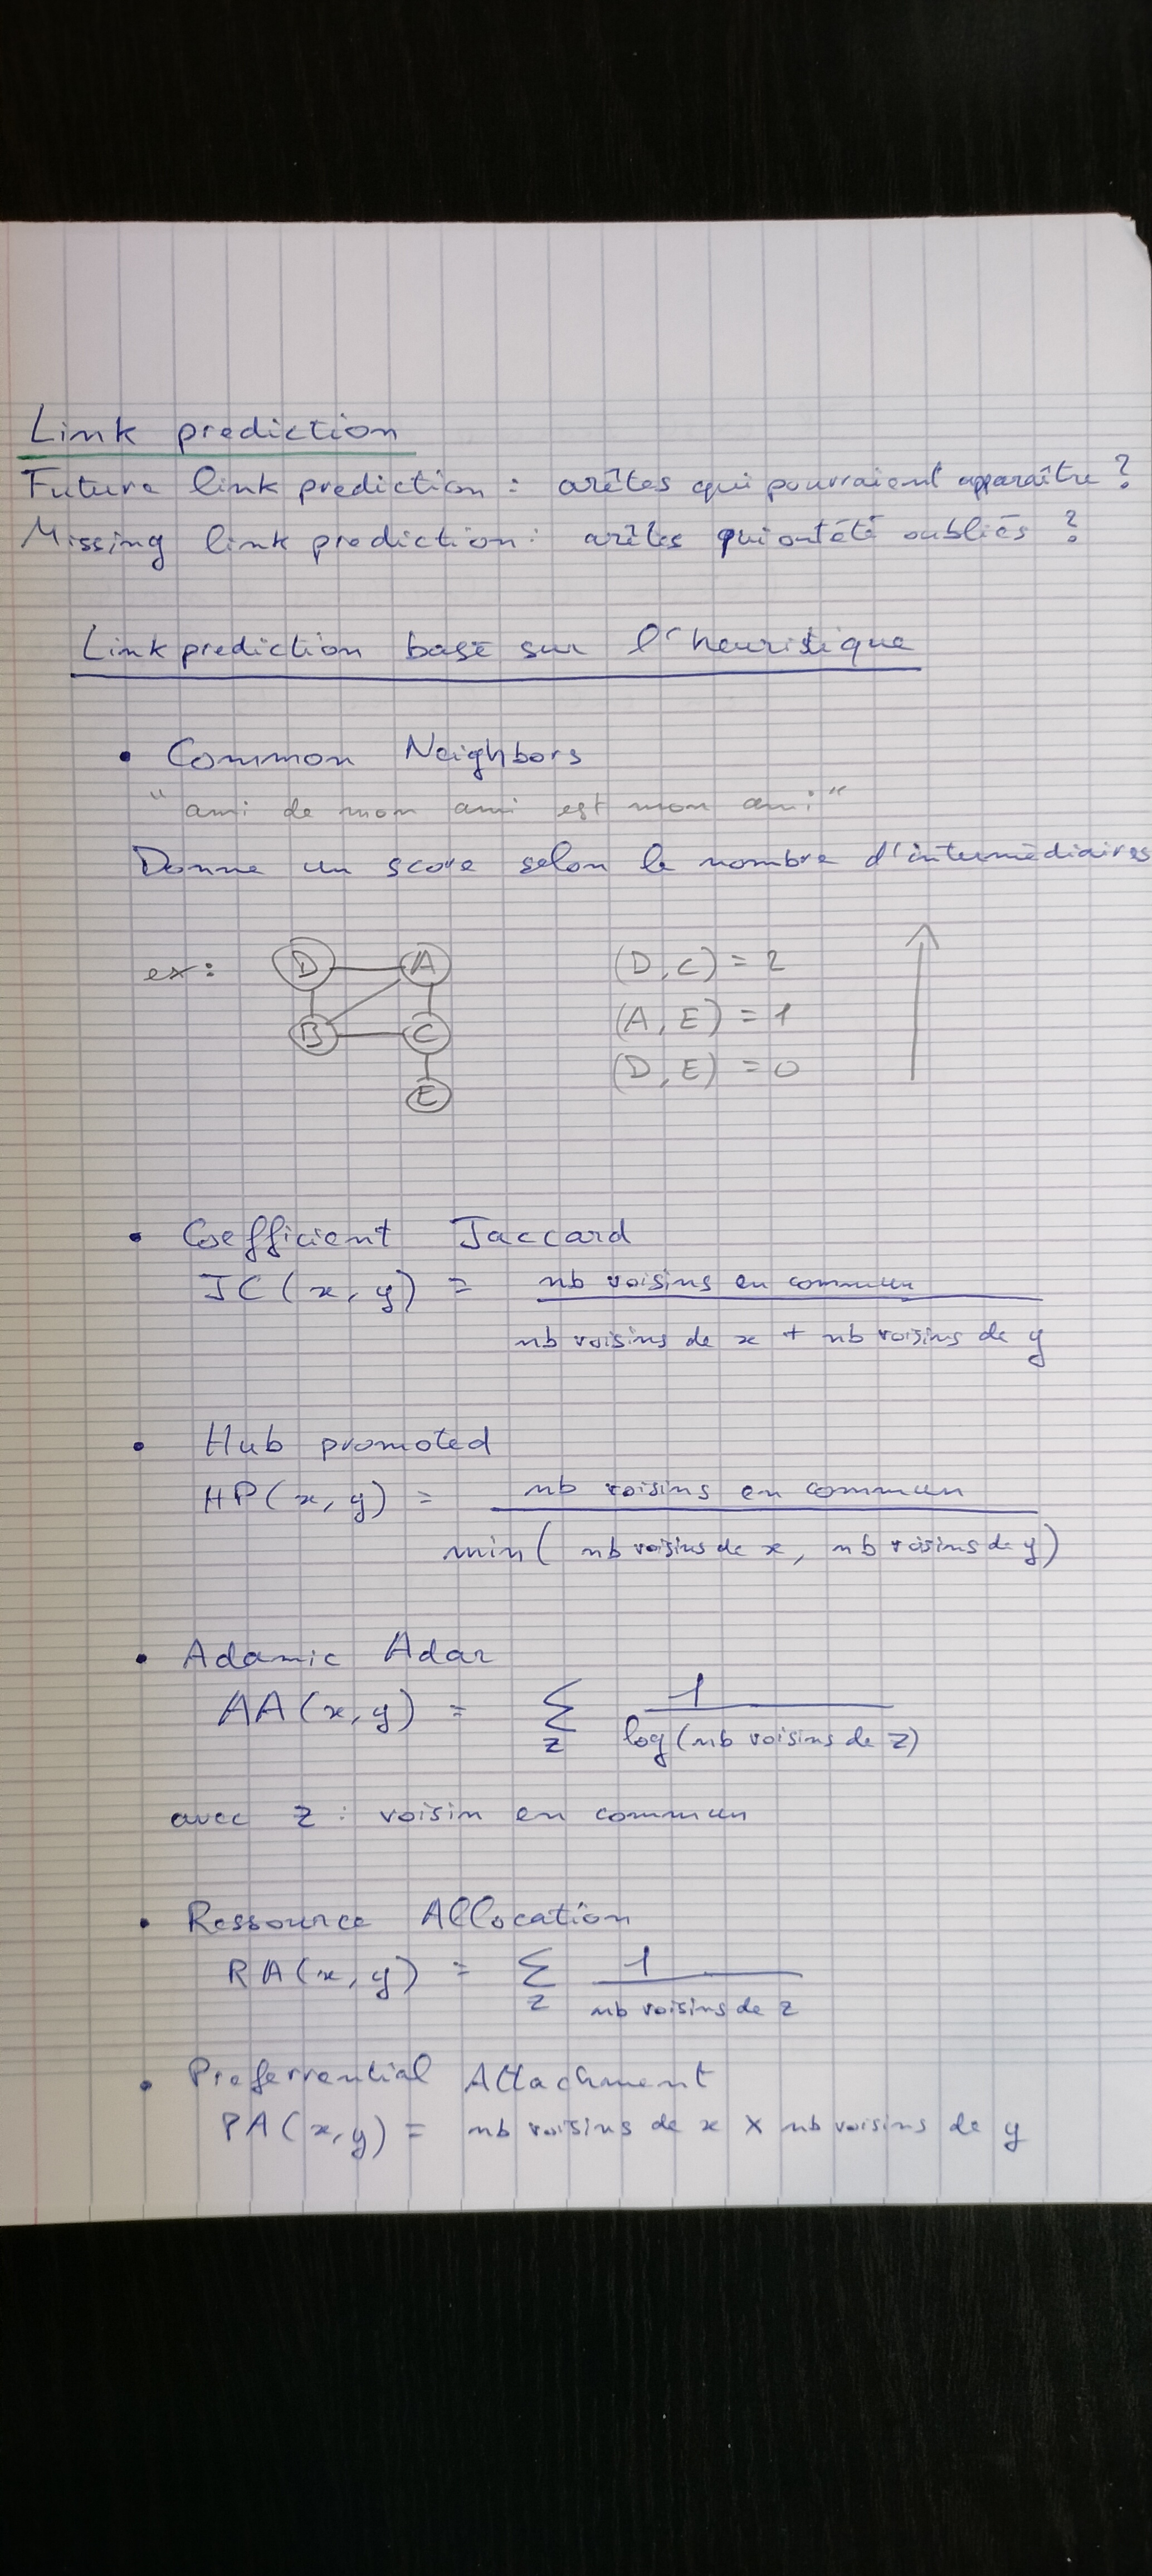 Link prediction
Future link prediction : arêtes qui pourraient apparaître ?
Missing link prediction : arêtes qui ont été oubliés ?
Link prediction basé sur l'heuristique
• Common Neighbors
"ami de mon ami est mon ami"
Donne un score selon le nombre d'intermédiaires
ex :
D A
B C
E
(D, C) = 2
(A, E) = 1
(D, E) = 0
• Coefficient Jaccard
JC(x, y) = nb voisins en commun
nb voisins de x + nb voisins de y
• Hub promoted
HP(x, y) = nb voisins en commun
min( nb voisins de x, nb voisins de y)
• Adamic Adar
AA(x, y) = Σ 1
z log(nb voisins de z)
avec z : voisin en commun
• Ressource Allocation
RA(x, y) = Σ 1
z nb voisins de z
• Preferrential Attachment
PA(x, y) = nb voisins de x × nb voisins de y